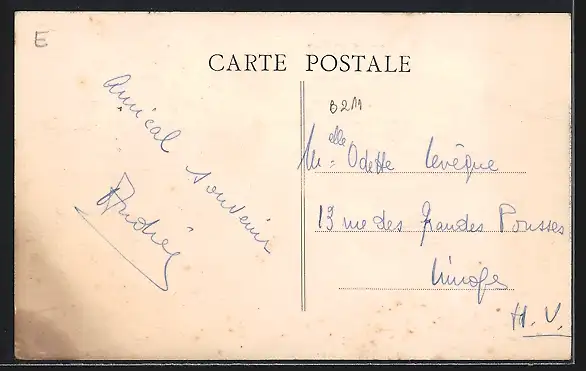 E
CARTE POSTALE
B211
Amical souvenir
Andrée
Melle Odette Levêque
13 rue des Grandes Pousses
Limoges
H. V.